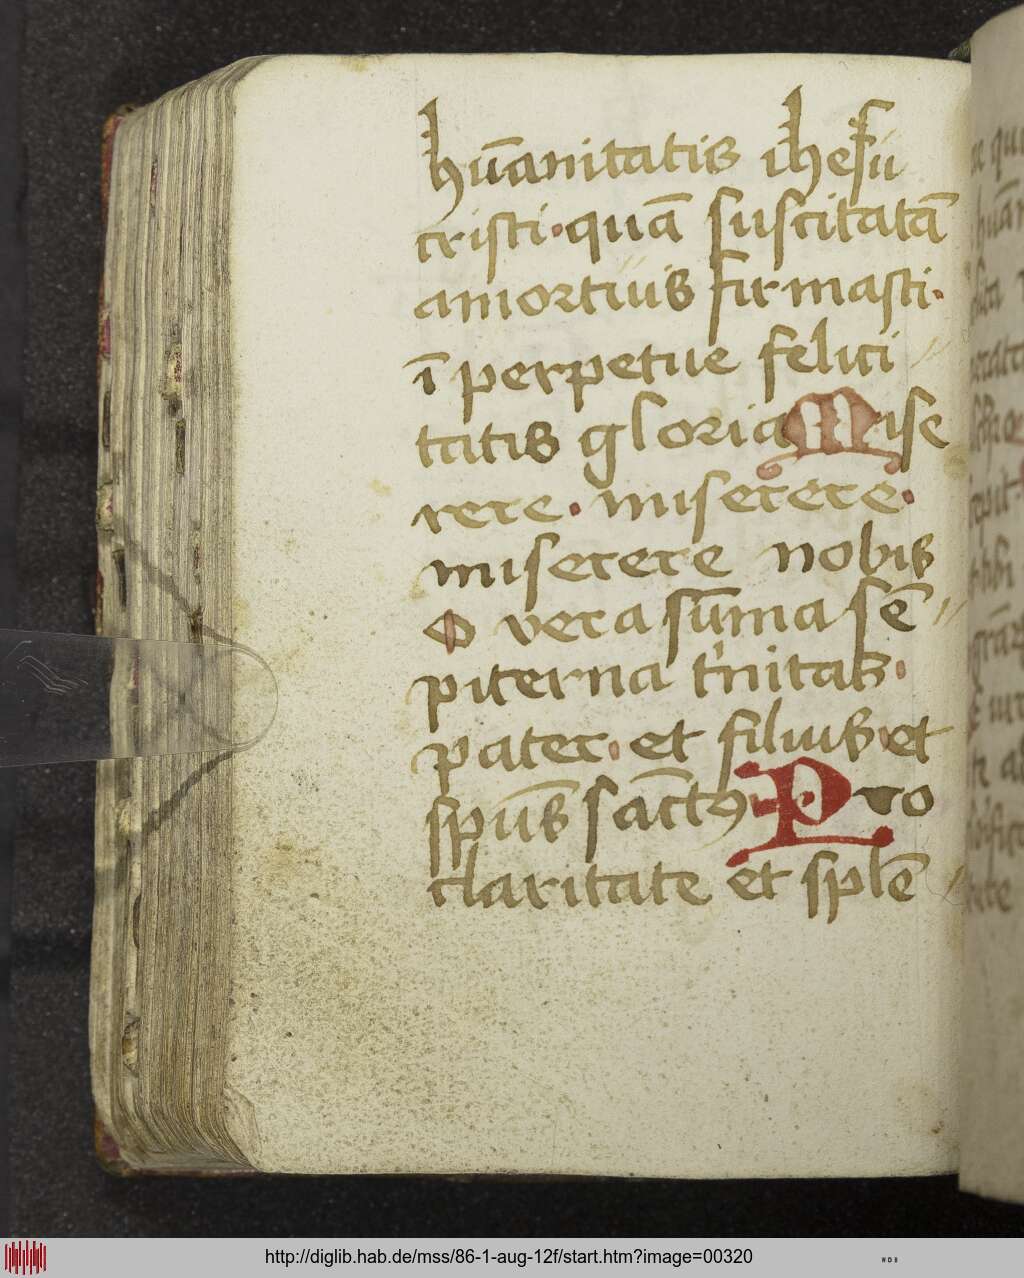 hūanitatis ihesu
cristi · quā suscitatā
amortuis firmasti ·
ī perpetue felici
tatis gloria Mise
rere · miserere ·
miserere nobis
O vera sūma sē
piterna trinitas ·
pater · et filius · et
spūs sāctus Pro
claritate et splē
http://diglib.hab.de/mss/86-1-aug-12f/start.htm?image=00320